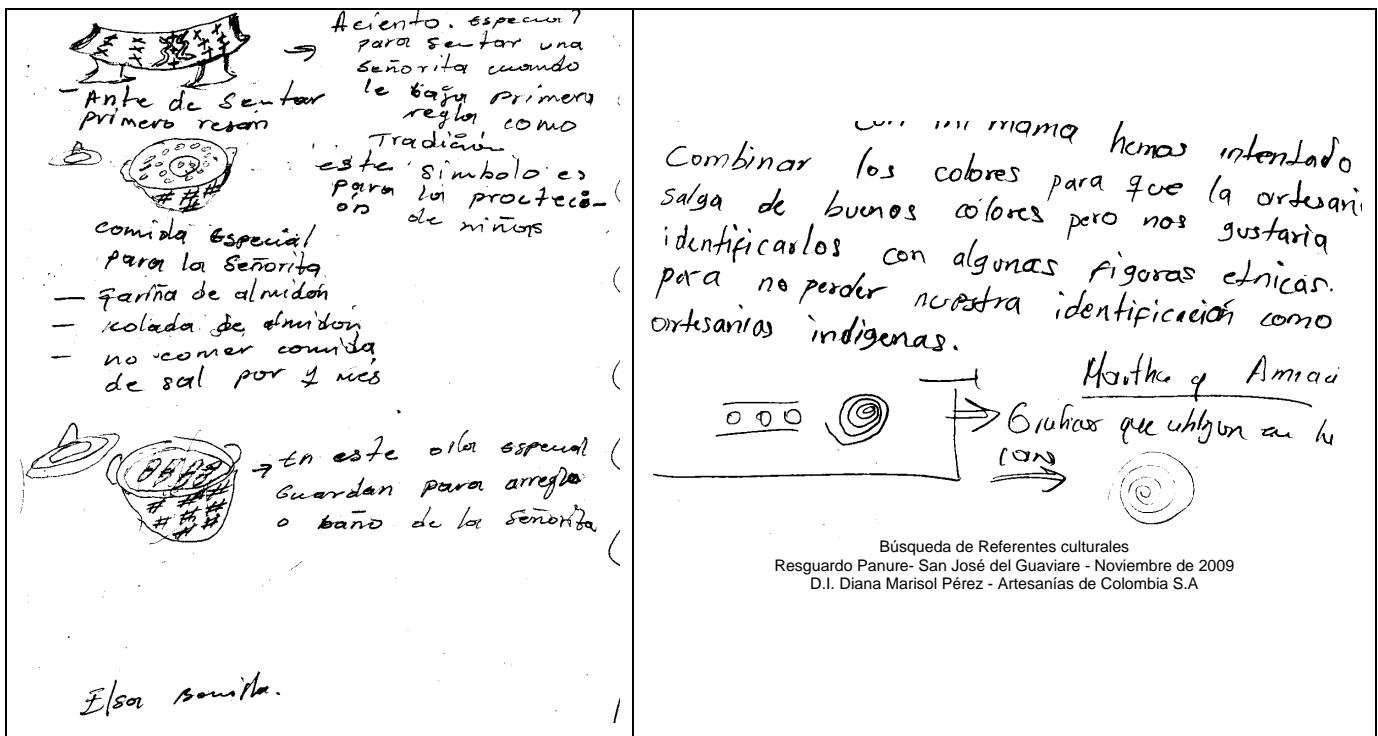 Aciento. especial
para sentar una
señorita cuando
le baja primera
regla como
Tradición
- Ante de Sentar
primero resan
este símbolo es
para la proctecci-
ón de niños
comida Especial
para la Señorita
— fariña de almidón
— colada de almidón
— no comer comida
de sal por 1 més
→ En este olla especial
Guardan para arreglo
o baño de la Señorita
Elsa Bonilla.
con mi mama hemos intentado
Combinar los colores para que la artesani
salga de buenos colores pero nos gustaria
identificarlos con algunas figuras etnicas.
para no perder nuestra identificación como
artesanias indigenas.
Martha y
que utilizan en la
Búsqueda de Referentes culturales
Resguardo Panure- San José del Guaviare - Noviembre de 2009
D.I. Diana Marisol Pérez - Artesanías de Colombia S.A